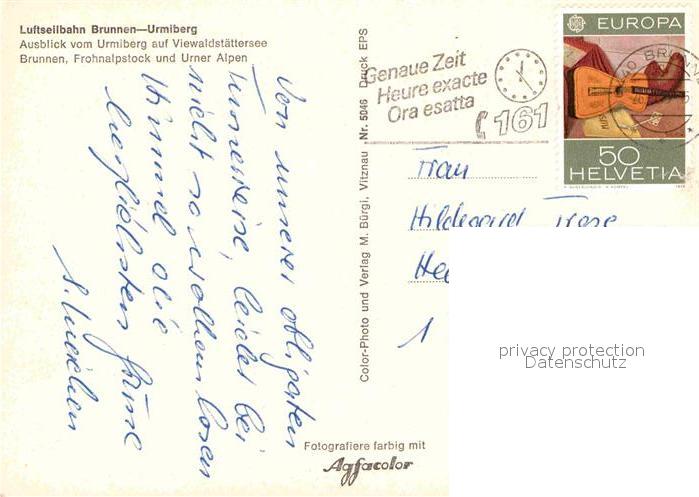 Luftseilbahn Brunnen—Urmiberg
Ausblick vom Urmiberg auf Viewaldstättersee
Brunnen, Frohnalpstock und Urner Alpen
Von unserer obligaten
leider bei
nicht so wolkenlosen
Himmel die
herzlichsten Grüße
Color-Photo und Verlag M. Bürgi, Vitznau Nr. 5046 Druck EPS
Genaue Zeit
Heure exacte
Ora esatta
161
EUROPA
50
HELVETIA
Frau
Hildegard
1
privacy protection
Datenschutz
Fotografiere farbig mit
Agfacolor